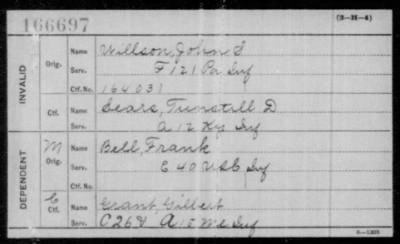 166697
(3-31-4)
INVALID
Orig.
Name Willson, John S
Serv. F 121 Pa Inf
Ctf. No. 164031
Ctf.
Name Sears, Tunstill D
Serv. A 12 Ky Inf
DEPENDENT
M
Orig.
Name Bell, Frank
Serv. E 40 USC Inf
Ctf. No.
C
Ctf.
Name Grant, Gilbert
Serv. A 15 Me Inf